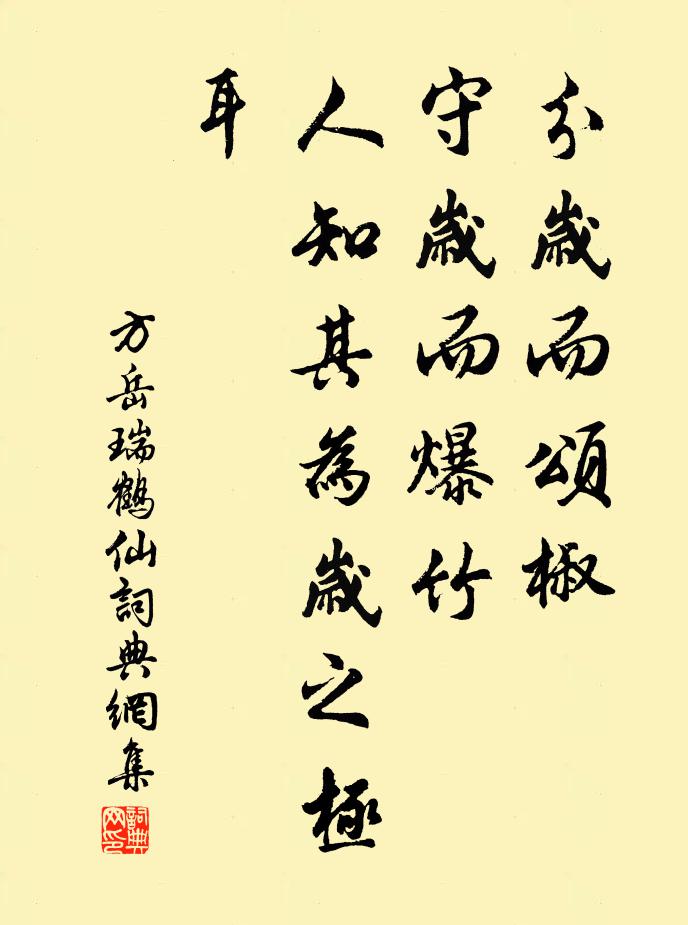 分歲而頌椒
守歲而爆竹
人知其為歲之極
耳
方岳瑞鶴仙詞典網集
詞典網印